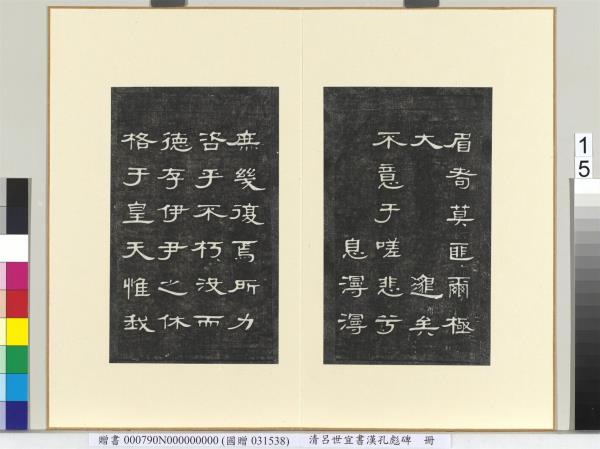 眉耇莫匪爾極
大矣
不意于嗟悲兮
息
庶幾復焉所力
咨乎不朽没而
德存伊尹之休
格于皇天惟我
15
贈書 000790N000000000 (國贈 031538) 清呂世宜書漢孔彪碑 冊